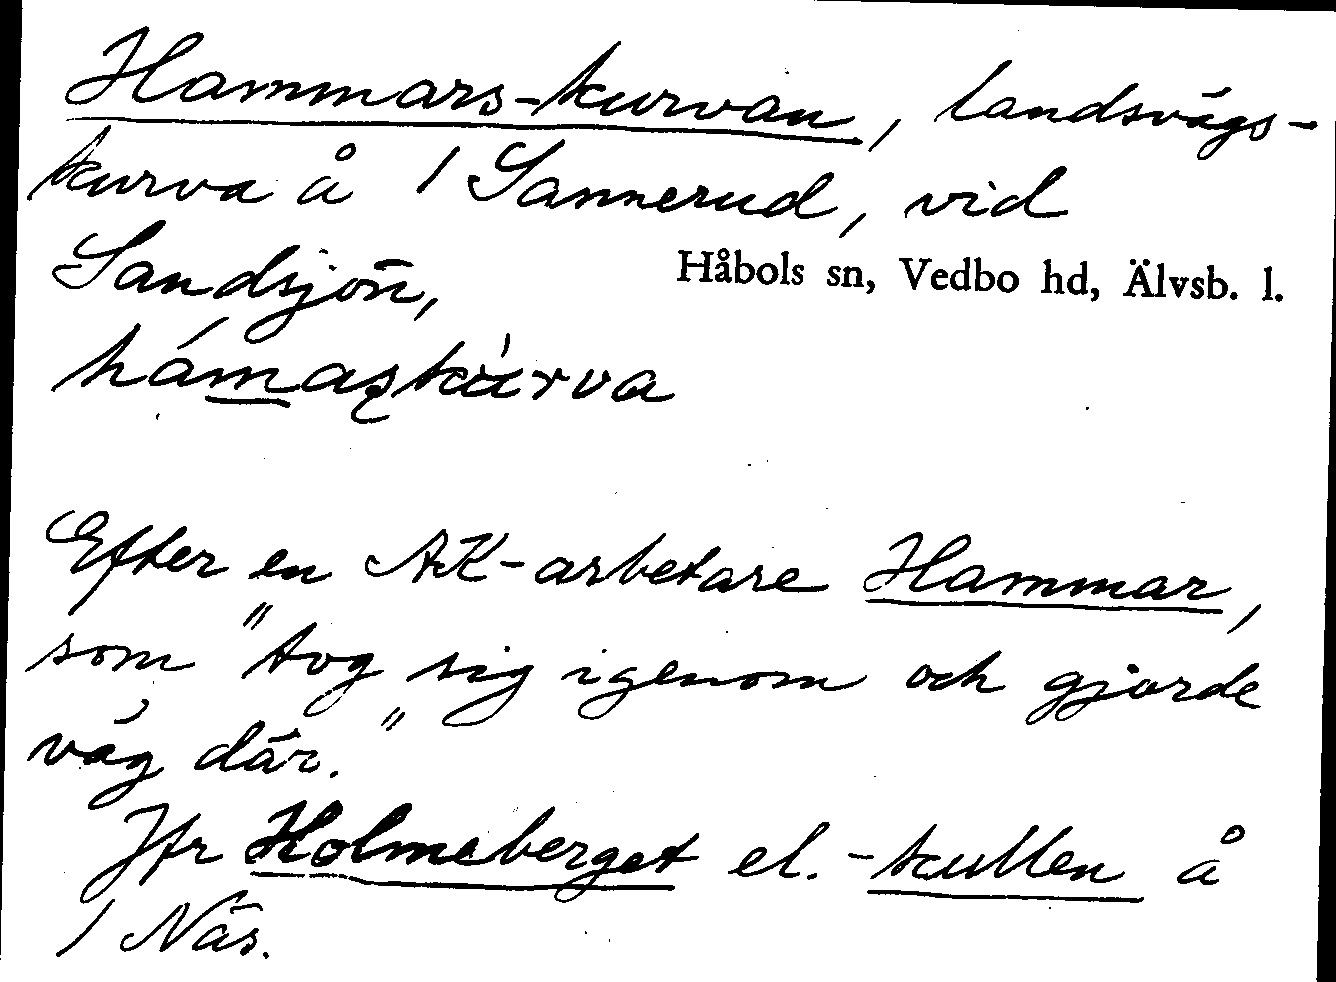 Hammars-kurvan, landsvägs-
kurva å 1 Sannerud, vid
Sandsjön,
Håbols sn, Vedbo hd, Älvsb. l.
Efter en AK-arbetare Hammar,
som "tog sig igenom och gjorde
väg där."
Jfr Holmeberget el. -kullen å
1 Näs.